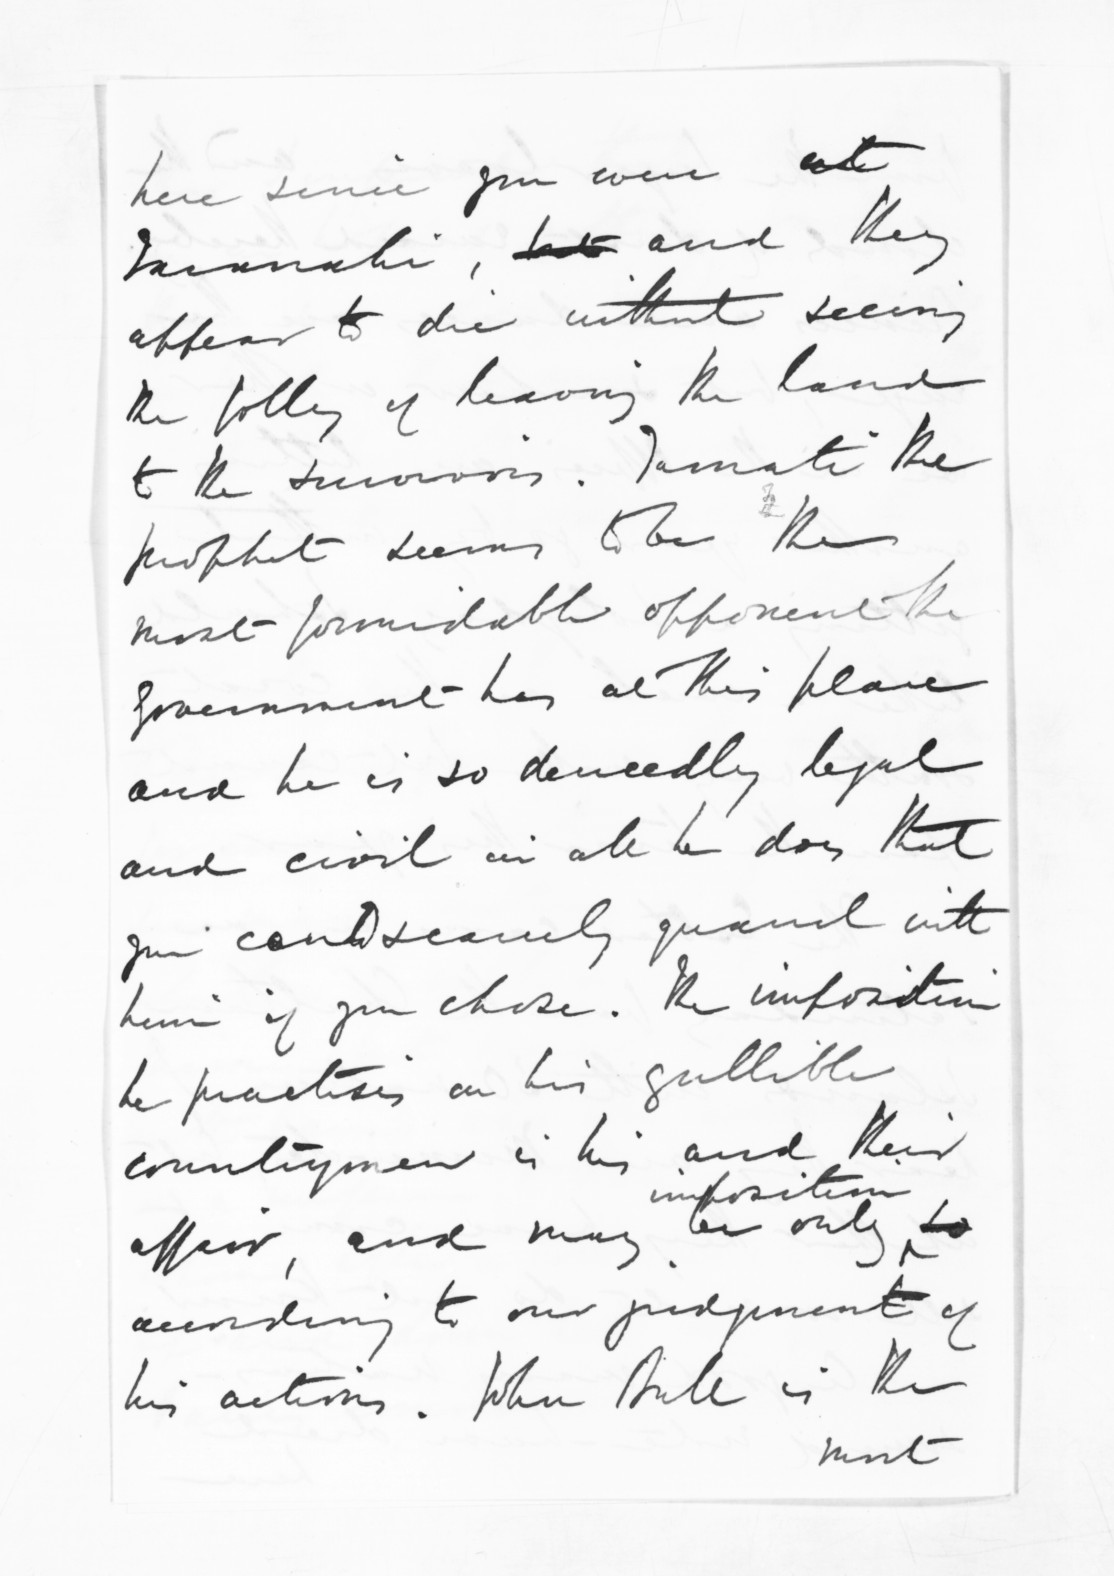 here since you were at
Taranaki, but and they
appear to die without seeing
the folley of leaving the land
to the survivors. Tamati the
prophet seems to be the
most formidable opponent the
Government has at this place
and he is so deucedly legal
and civil in all he does that
you could scarcely quarrel with
him if you chose. The imposition
he practises on his gullible
countrymen is his and their
affair, and may be only imposition so
according to our judgment of
his actions. John Bull is the
most